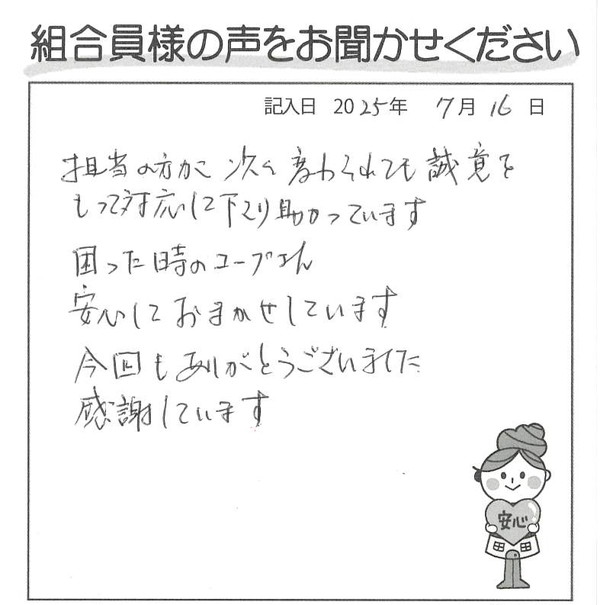 組合員様の声をお聞かせください
記入日 2025年 7月 16日
担当の方が次々変わられても誠意を
もって対応して下さり助かっています
困った時のコープさん
安心しておまかせしています
今回もありがとうございました
感謝しています
安心